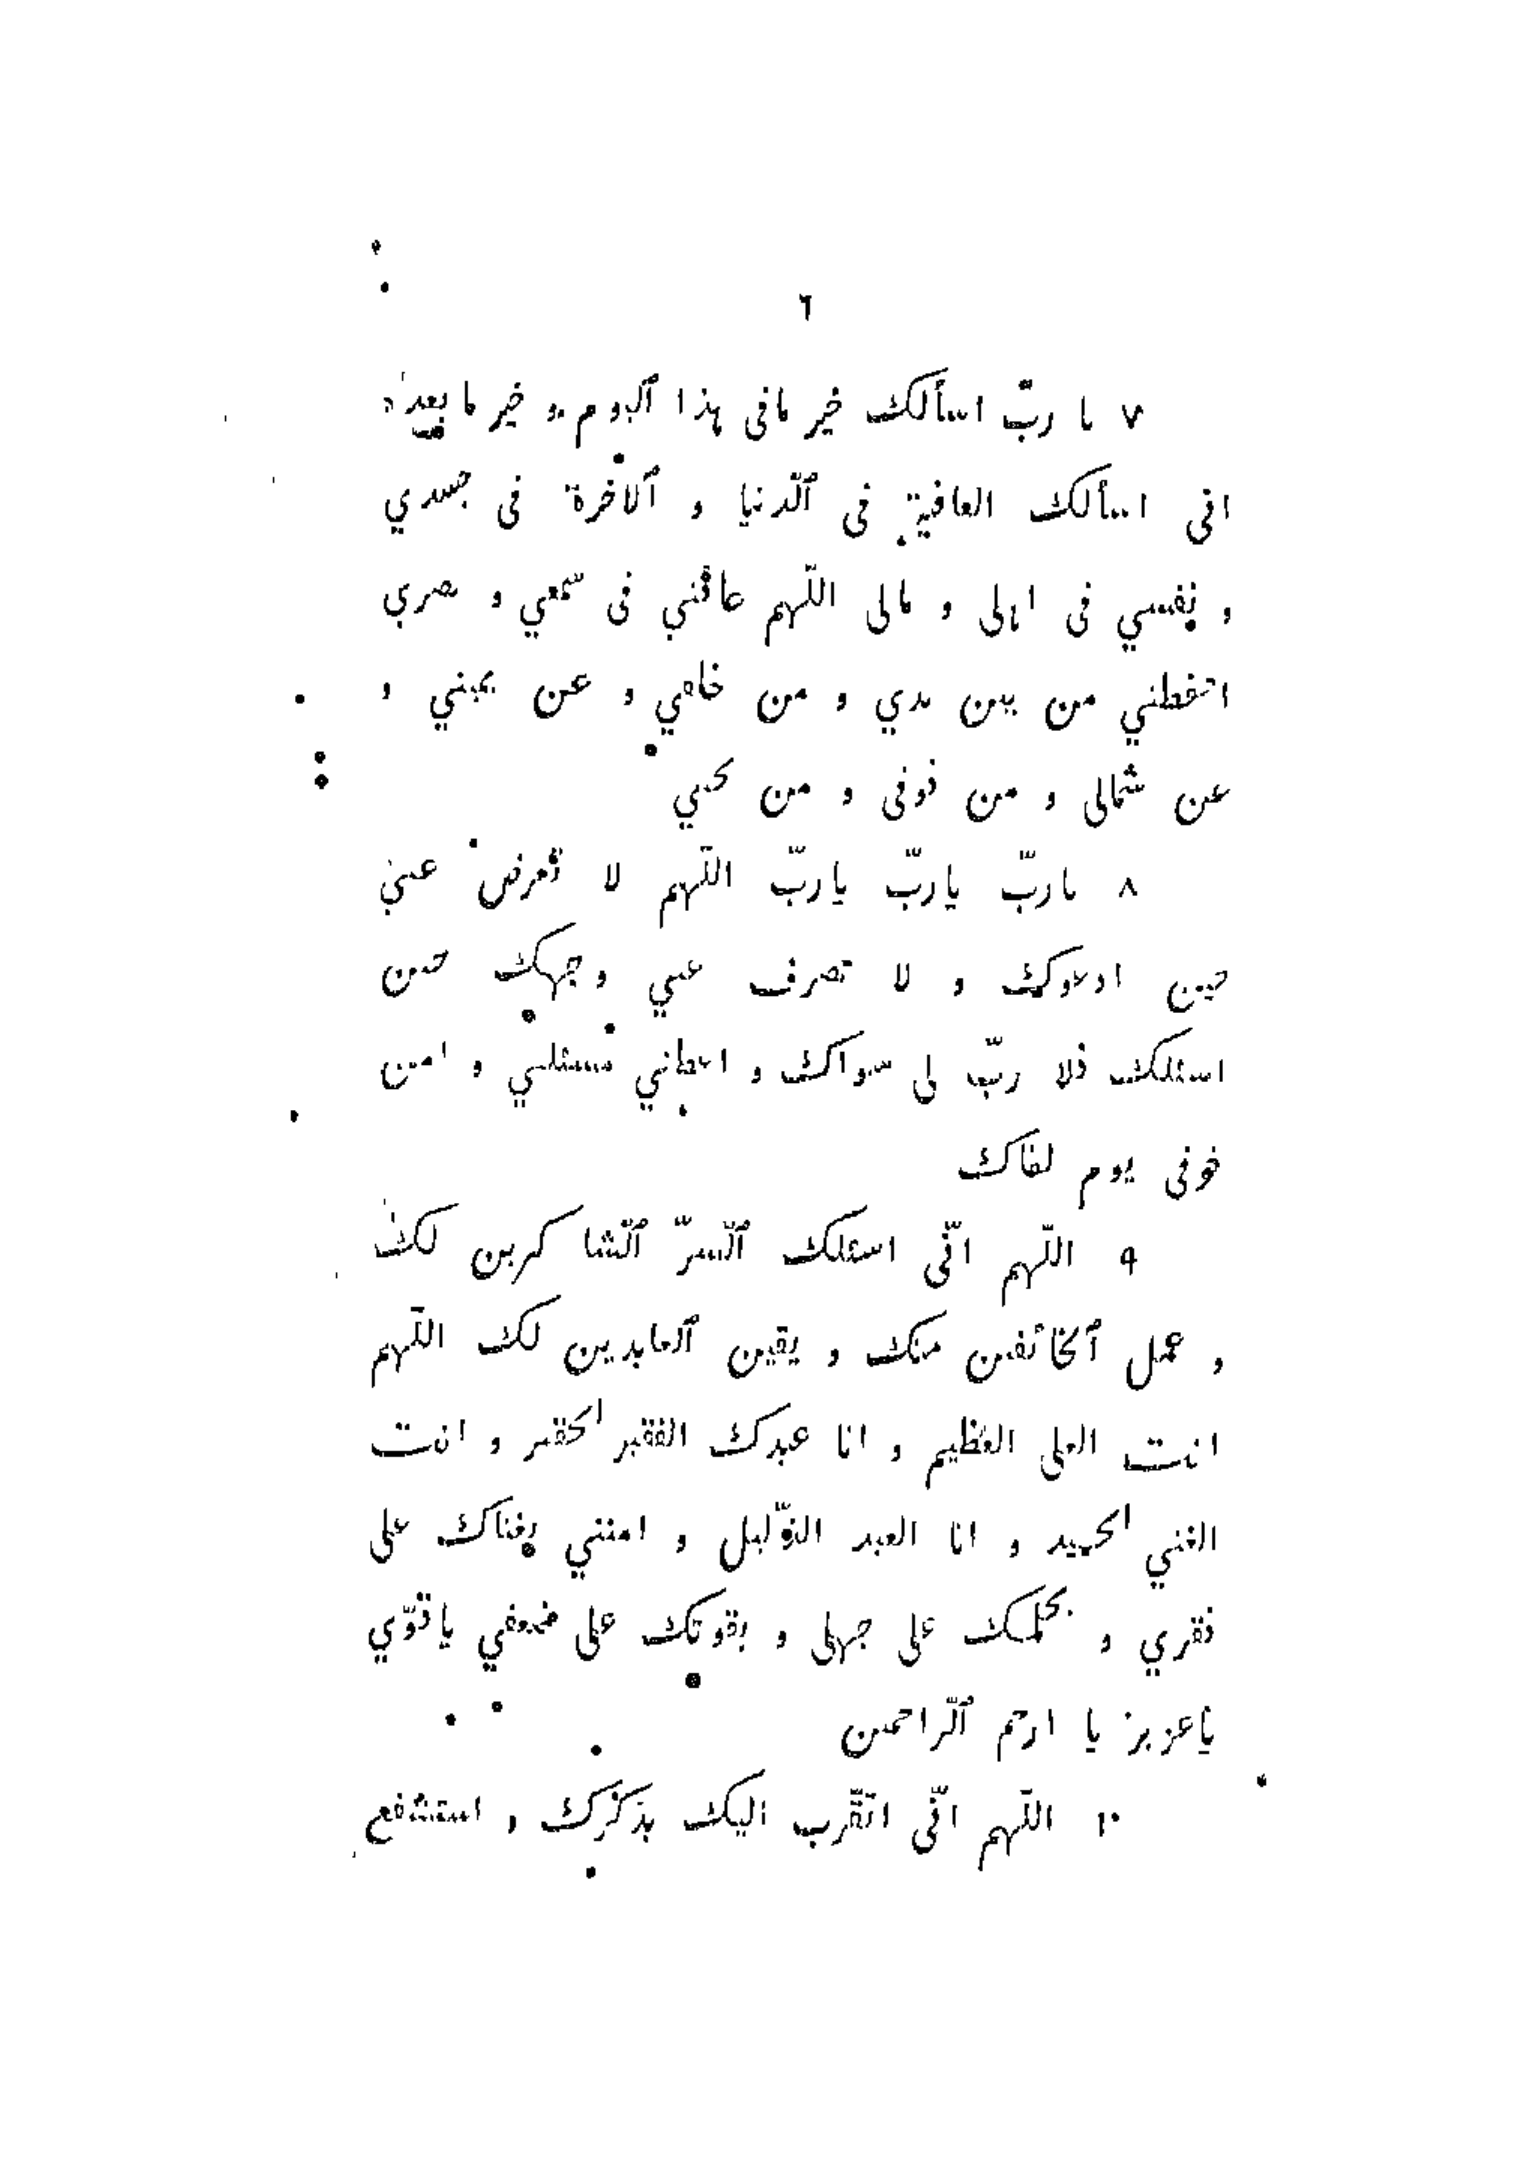 ٦
٧ يا ربّ اسألك خير مافى هذا ٱليوم و خير ما بعده
انى اسألك العافية فى ٱلّدنيا و ٱلاخرة فى جسدي
و نفسي فى اهلى و مالى اللّهم عافنني فى سمعي و بصري
احفظني من بين يدي و من خلفي و عن يميني و
عن شمالى و من فوقى و من تحتي
٨ ياربّ ياربّ ياربّ اللّهم لا تعرض عني
حين ادعوك و لا تصرف عني وجهك حين
اسئلك فلا ربّ لى سواك و اعطني مسئلتي و امن
خوفى يوم لقاك
٩ اللّهم انّى اسئلك ٱلّسرّ ٱلّشاكرين لك
و عمل ٱلخائفين منك و يقين ٱلعابدين لك اللّهم
انت العلى العظيم و انا عبدك الفقير الحقير و انت
الغني الحميد و انا العبد الذّليل و امنني بغناك على
فقري و بحلمك على جهلى و بقوتك على ضعفي ياقوّي
ياعزيز يا ارحم ٱلّراحمين
١٠ اللّهم انّى اتقّرب اليك بذكرك و استشفع